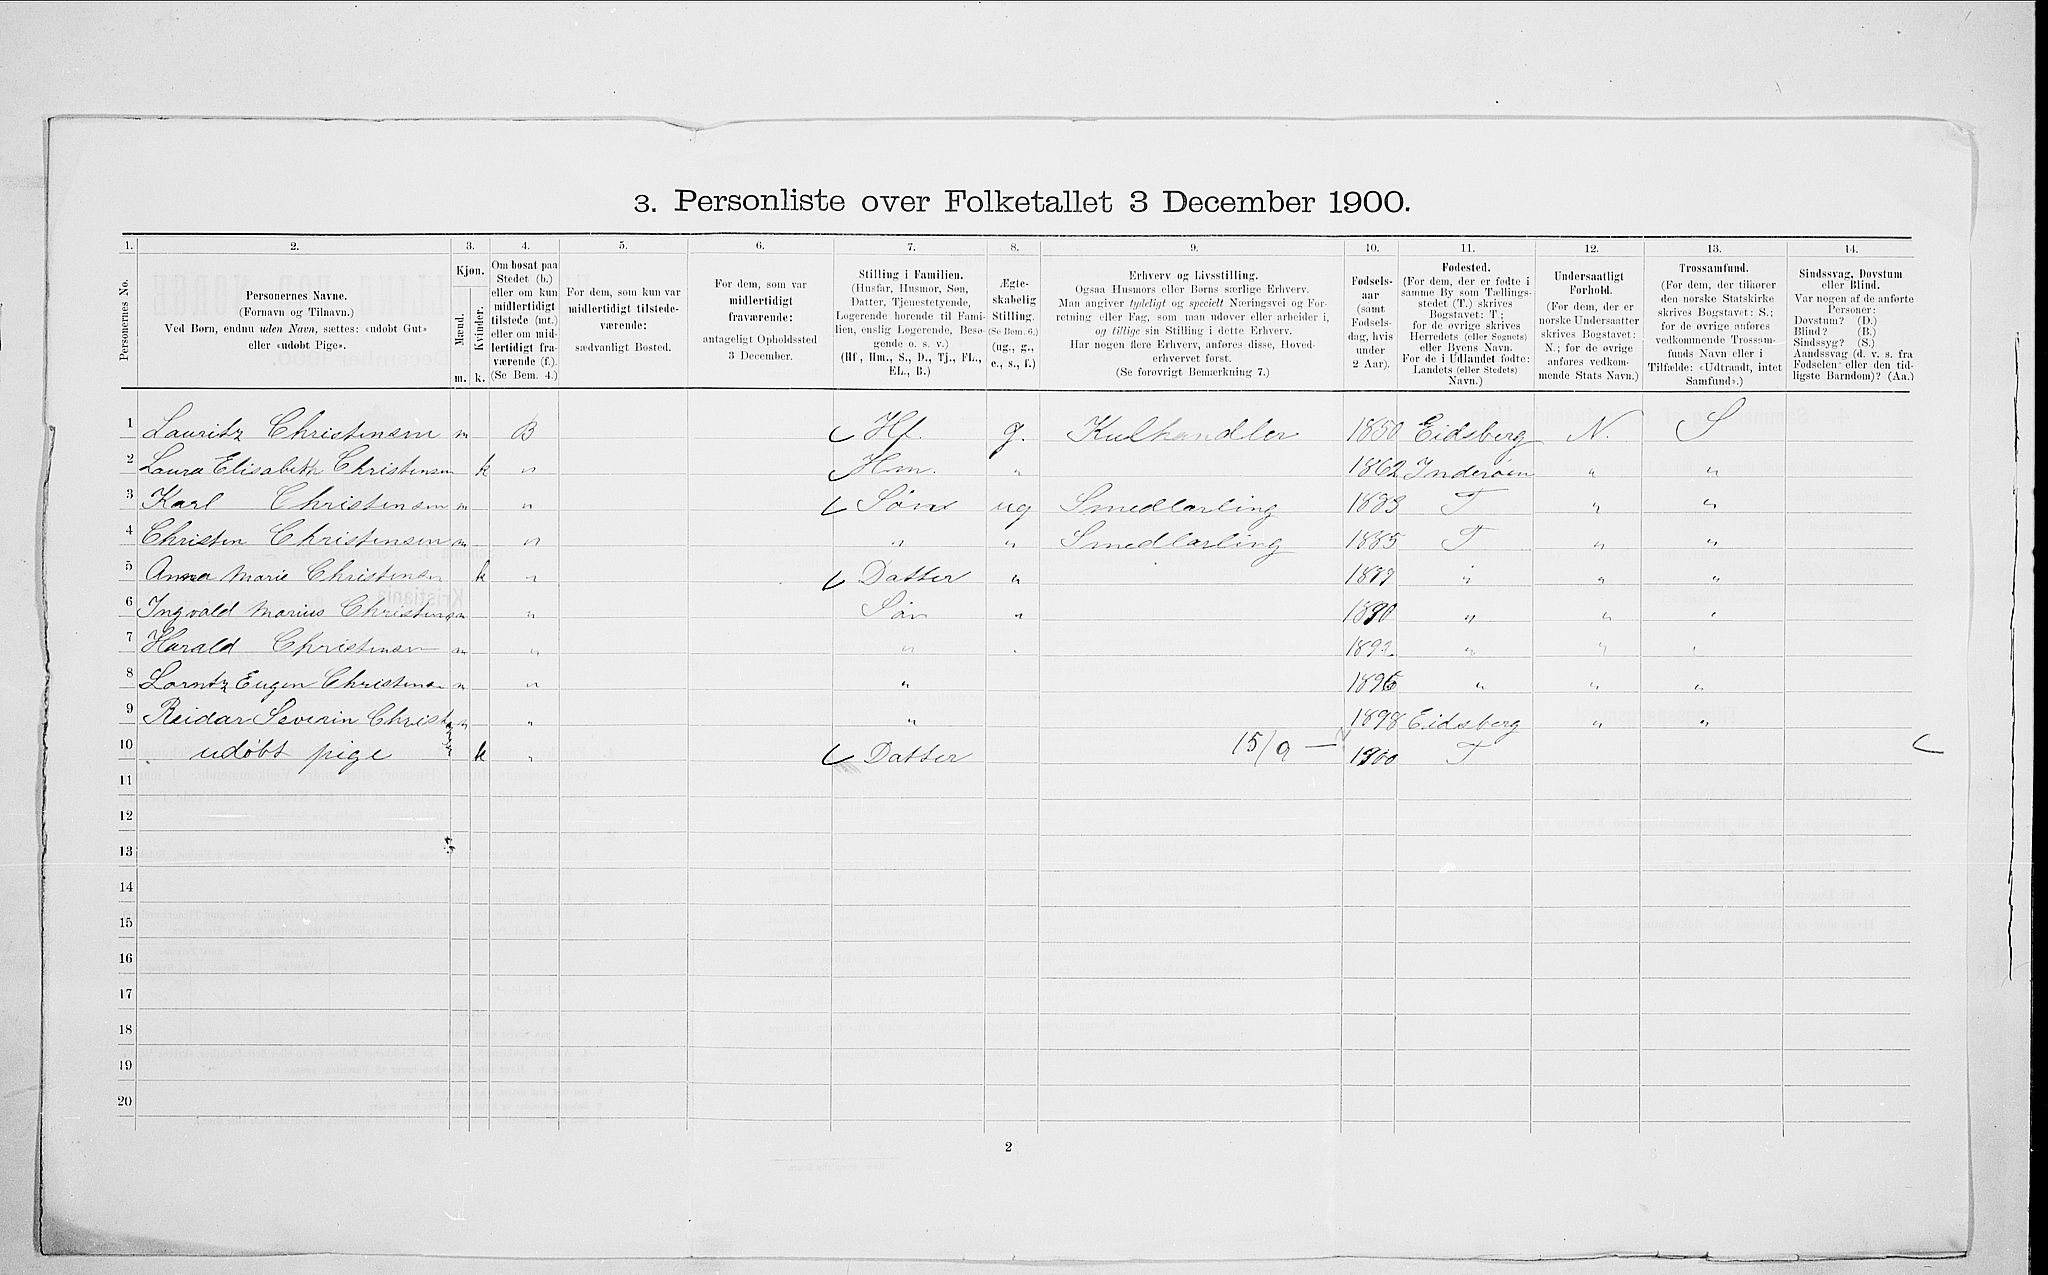 3. Personliste over Folketallet 3 December 1900.
1. 2. 3. 4. 5. 6. 7. 8. 9. 10. 11. 12. 13. 14.
Personernes No.
Personernes Navne.
(Fornavn og Tilnavn.)
Ved Børn, endnu uden Navn, sættes: «udøbt Gut»
eller «udøbt Pige».
Kjøn.
Mænd.
Kvinder.
m. k.
Om bosat paa
Stedet (b.)
eller om kun
midlertidigt
tilstede (mt.)
eller om mid-
lertidigt fra-
værende (f.).
(Se Bem. 4.)
For dem, som kun var
midlertidigt tilstede-
værende:
sædvanligt Bosted.
For dem, som var
midlertidigt
fraværende:
antageligt Opholdssted
3 December.
Stilling i Familien.
(Husfar, Husmor, Søn,
Datter, Tjenestetyende,
Logerende hørende til Fami-
lien, enslig Logerende, Besø-
gende o. s. v.)
(Hf., Hm., S., D., Tj., FL.,
EL., B.)
Ægte-
skabelig
Stilling.
(Se Bem. 6.)
(ug., g.,
e., s., f.)
Erhverv og Livsstilling.
Ogsaa Husmors eller Børns særlige Erhverv.
Man angiver tydeligt og specielt Næringsvei og For-
retning eller Fag, som man udøver eller arbeider i,
og tillige sin Stilling i dette Erhverv.
Har nogen flere Erhverv, anføres disse, Hoved-
erhvervet først.
(Se forøvrigt Bemærkning 7.)
Fødsels-
aar
(samt
Fødsels-
dag, hvis
under
2 Aar).
Fødested.
(For dem, der er fødte i
samme By som Tællings-
stedet (T.) skrives
Bogstavet: T.;
for de øvrige skrives
Herredets (eller Sognets)
eller Byens Navn.
For de i Udlandet fødte:
Landets (eller Stedets)
Navn.)
Undersaatligt
Forhold.
(For dem, der er
norske Undersaatter
skrives Bogstavet:
N.; for de øvrige
anføres vedkom-
mende Stats Navn.)
Trossamfund.
(For dem, der tilhører
den norske Statskirke
skrives Bogstavet: S.;
for de øvrige anføres
vedkommende Trossam-
funds Navn eller i
Tilfælde: «Udtraadt, intet
Samfund».)
Sindssvag, Døvstum
eller Blind.
Var nogen af de anførte
Personer:
Døvstum? (D.)
Blind? (B.)
Sindssyg? (S.)
Aandssvag (d. v. s. fra
Fødselen eller den tid-
ligste Barndom)? (Aa.)
1 Lauritz Christensen m B Hf. g. Kulhandler 1850 Eidsberg N. S
2 Laura Elisabeth Christensen k " Hm. " 1862 Inderøen " "
3 Karl Christensen m " Søn ug Smedlærling 1883 T " "
4 Christen Christensen m " " " Smedlærling 1885 T " "
5 Anna Marie Christensen k " Datter " " " "
6 Ingvald Marius Christensen m " Søn " 1890 " " "
7 Harald Christensen m " " " " " "
8 Eugen Christensen m " " " " "
9 Reidar Severin Christensen m " " 1898 Eidsberg " "
10 udøbt pige k " Datter 15/9 — 1900 T
11
12
13
14
15
16
17
18
19
20
2